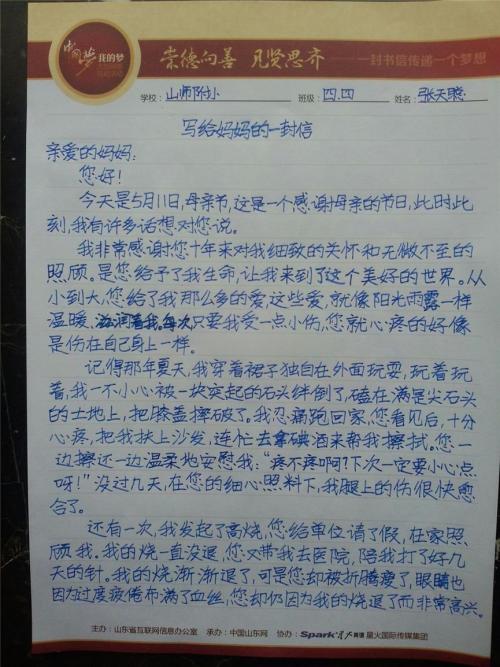 中国梦 我的梦
崇德向善 见贤思齐 ——一封书信传递一个梦想
学校：山师附小 班级：四.四 姓名：张天聪
写给妈妈的一封信
亲爱的妈妈：
您好！
今天是5月11日，母亲节，这是一个感谢母亲的节日，此时此
刻，我有许多话想对您说。
我非常感谢您十年来对我细致的关怀和无微不至的
照顾。是您给予了我生命，让我来到了这个美好的世界。从
小到大，您给了我那么多的爱，这些爱，就像阳光雨露一样
温暖，滋润着我。每次只要我受一点小伤，您就心疼的好像
是伤在自己身上一样。
记得那年夏天，我穿着裙子独自在外面玩耍，玩着玩
着，我一不小心被一块突起的石头绊倒了，磕在满是尖石头
的土地上，把膝盖摔破了。我忍痛跑回家，您看见后，十分
心疼，把我扶上沙发，连忙去拿碘酒来帮我擦拭。您一
边擦还一边温柔地安慰我：“疼不疼啊？下次一定要小心点
呀！”没过几天，在您的细心照料下，我腿上的伤很快愈
合了。
还有一次，我发起了高烧，您给单位请了假，在家照
顾我。我的烧一直没退，您又带我去医院，陪我打了好几
天的针。我的烧渐渐退了，可是您却被折腾瘦了，眼睛也
因为过度疲倦布满了血丝，您却仍因为我的烧退了而非常高兴。
主办：山东省互联网信息办公室 承办：中国山东网 协办：Spark 星火英语 星火国际传媒集团